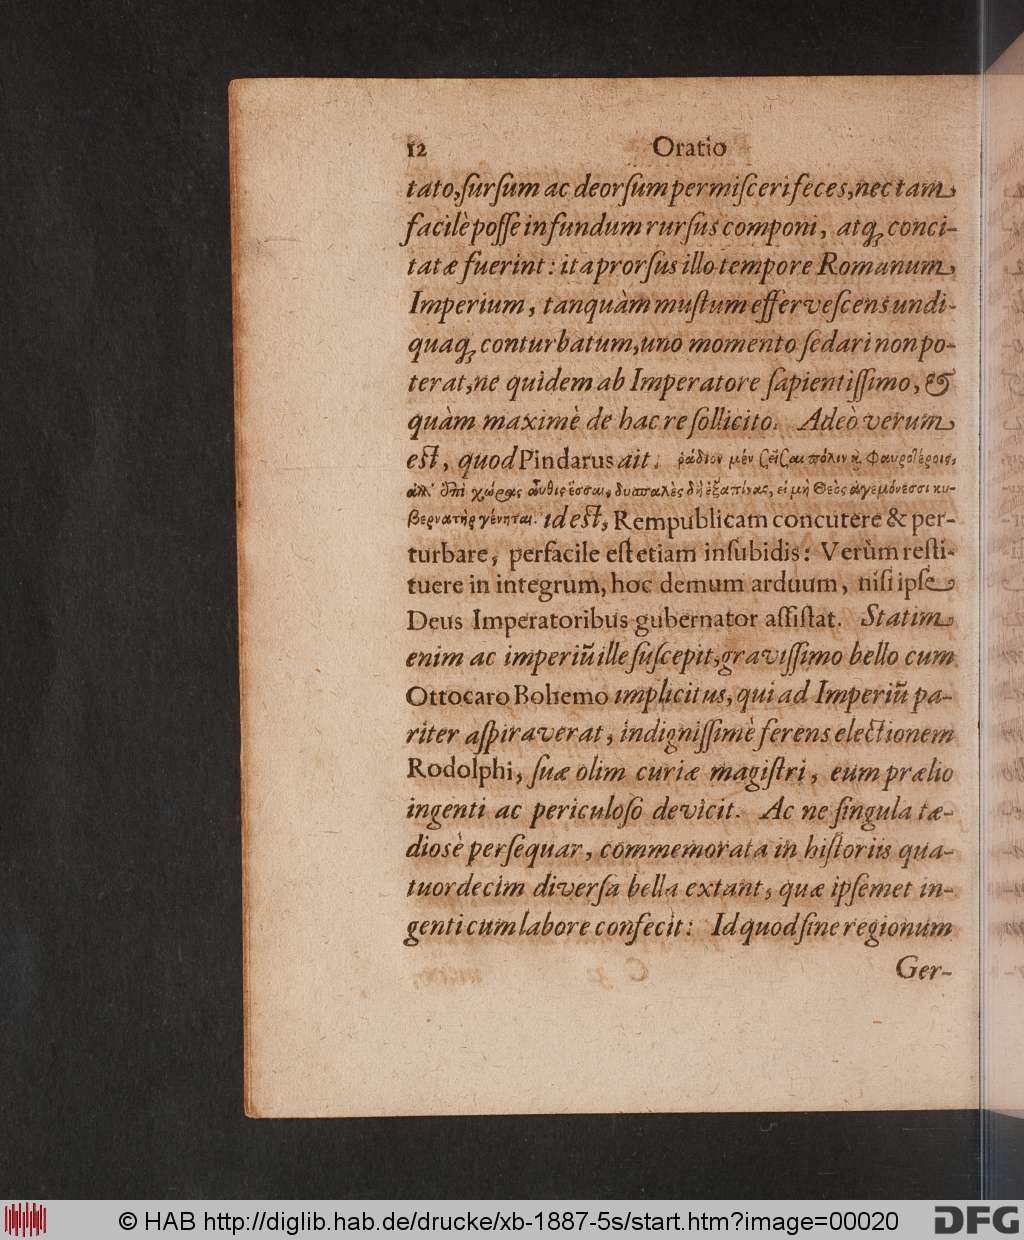 12 Oratio
tato, ſurſum ac deorſum permiſceri feces, nec tam
facilè poſſe in fundum rurſus componi, atq; conci-
tatæ fuerint: ita prorſus illo tempore Romanum
Imperium, tanquàm muſtum efferveſcens undi-
quaq; conturbatum, uno momento ſedari non po-
terat, ne quidem ab Imperatore ſapientiſſimo, &
quàm maximè de hac re ſollicito. Adeò verum
eſt, quod Pindarus ait: ῥάδιον μὲν σεῖσαι πόλιν κ̀
ἀλλ' ἐπὶ χώρας αὖθις ἕσσαι, δυσπαλὲς δὴ ἐξαπίνας, εἰ μὴ Θεὸς ἁγεμόνεσσι κυ-
βερνατὴρ γένηται. id eſt, Rempublicam concutere & per-
turbare, perfacile eſt etiam inſubidis: Verùm reſti-
tuere in integrum, hoc demum arduum, niſi ipſe
Deus Imperatoribus gubernator aſſiſtat. Statim
enim ac imperiũ ille ſuſcepit, graviſſimo bello cum
Ottocaro Bohemo implicitus, qui ad Imperiũ pa-
riter aſpiraverat, indigniſſimè ferens electionem
Rodolphi, ſuæ olim curiæ magiſtri, eum prælio
ingenti ac periculoſo devicit. Ac ne ſingula tæ-
diosè perſequar, commemorata in hiſtoriis qua-
tuordecim diverſa bella extant, quæ ipſemet in-
genti cum labore confecit: Id quod ſine regionum
Ger-
© HAB http://diglib.hab.de/drucke/xb-1887-5s/start.htm?image=00020
DFG